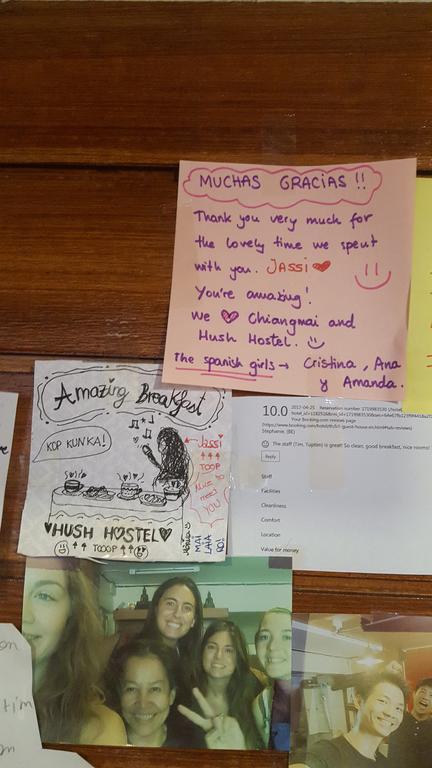 MUCHAS GRACIAS !!
Thank you very much for
the lovely time we spent
with you. JASSI
You're amazing!
We ♥ Chiangmai and
Hush Hostel.
The spanish girls → Cristina, Ana
y Amanda.
Amazing Breakfast
KOP KUN KA!
Jassi
↑↑↑
TOOP
Nice to
meet
YOU
♥HUSH HOSTEL♥
↑↑ TOOOP ↑↑
MAI
LAIA
10.0
2017-04-25
Reservation number
Your Booking.com reviews page
Stephanie. (BE)
The staff (Tim, Yuptien) is great! So clear, good breakfast, nice rooms!
Reply
Staff
Facilities
Cleanliness
Comfort
Location
Value for money